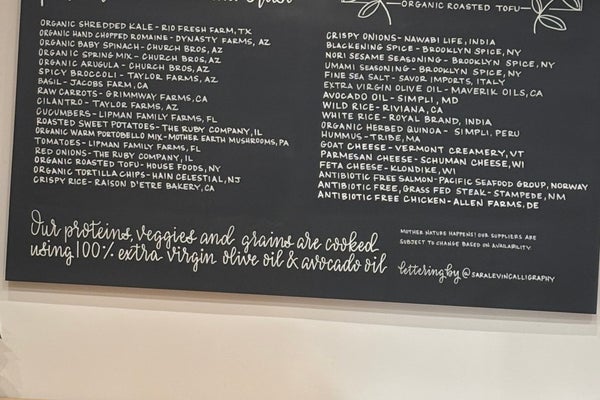 ORGANIC ROASTED TOFU
ORGANIC SHREDDED KALE - RIO FRESH FARM, TX
ORGANIC HAND CHOPPED ROMAINE - DYNASTY FARMS, AZ
ORGANIC BABY SPINACH - CHURCH BROS, AZ
ORGANIC SPRING MIX - CHURCH BROS, AZ
ORGANIC ARUGULA - CHURCH BROS, AZ
SPICY BROCCOLI - TAYLOR FARMS, AZ
BASIL - JACOBS FARM, CA
RAW CARROTS - GRIMMWAY FARMS, CA
CILANTRO - TAYLOR FARMS, AZ
CUCUMBERS - LIPMAN FAMILY FARMS, FL
ROASTED SWEET POTATOES - THE RUBY COMPANY, IL
ORGANIC WARM PORTOBELLO MIX - MOTHER EARTH MUSHROOMS, PA
TOMATOES - LIPMAN FAMILY FARMS, FL
RED ONIONS - THE RUBY COMPANY, IL
ORGANIC ROASTED TOFU - HOUSE FOODS, NY
ORGANIC TORTILLA CHIPS - HAIN CELESTIAL, NJ
CRISPY RICE - RAISON D'ETRE BAKERY, CA
CRISPY ONIONS - NAWABI LIFE, INDIA
BLACKENING SPICE - BROOKLYN SPICE, NY
NORI SESAME SEASONING - BROOKLYN SPICE, NY
UMAMI SEASONING - BROOKLYN SPICE, NY
FINE SEA SALT - SAVOR IMPORTS, ITALY
EXTRA VIRGIN OLIVE OIL - MAVERIK OILS, CA
AVOCADO OIL - SIMPLI, MD
WILD RICE - RIVIANA, CA
WHITE RICE - ROYAL BRAND, INDIA
ORGANIC HERBED QUINOA - SIMPLI, PERU
HUMMUS - TRIBE, MA
GOAT CHEESE - VERMONT CREAMERY, VT
PARMESAN CHEESE - SCHUMAN CHEESE, WI
FETA CHEESE - KLONDIKE, WI
ANTIBIOTIC FREE SALMON - PACIFIC SEAFOOD GROUP, NORWAY
ANTIBIOTIC FREE, GRASS FED STEAK - STAMPEDE, NM
ANTIBIOTIC FREE CHICKEN - ALLEN FARMS, DE
Our proteins, veggies and grains are cooked
using 100% extra virgin olive oil & avocado oil
MOTHER NATURE HAPPENS! OUR SUPPLIERS ARE
SUBJECT TO CHANGE BASED ON AVAILABILITY.
lettering by @SARALEVINCALLIGRAPHY